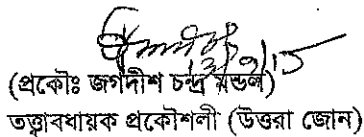 (প্রকৌঃ জগদীশ চন্দ্র মন্ডল)
তত্ত্বাবধায়ক প্রকৌশলী (উত্তরা জোন)